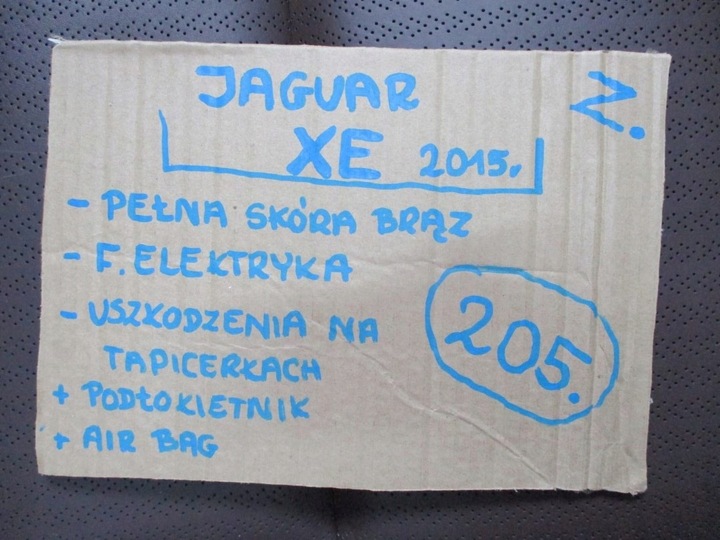 JAGUAR
Z.
XE 2015r.
- PEŁNA SKÓRA BRĄZ
- F. ELEKTRYKA
- USZKODZENIA NA
TAPICERKACH
+ PODŁOKIETNIK
+ AIR BAG
205.